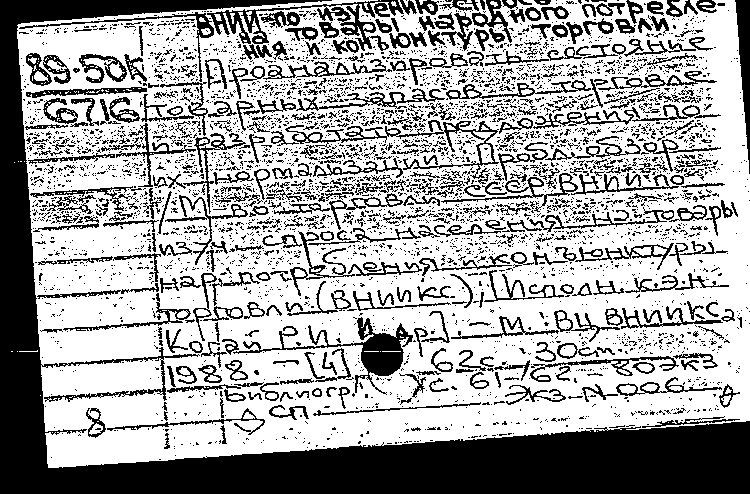 ВНИИ по изучению спроса
на товары народного потребле-
ния и конъюнктуры торговли
89-50к
6716
Проанализировать состояние
товарных запасов в торговле
и разработать предложения по
их нормализации. Пробл. обзор
/М-во торговли СССР, ВНИИ по
изуч. спроса населения на товары
нар. потребления и конъюнктуры
торговли (ВНИИКС); [Исполн. к.э.н.
Когай Р.И. и др.]. - М. : ВЦ ВНИИКСа,
1988. - [4] 62с. ; 30см.
Библиогр.: с. 61-62. - 80 экз.
Экз. N 006.
ДСП.
8